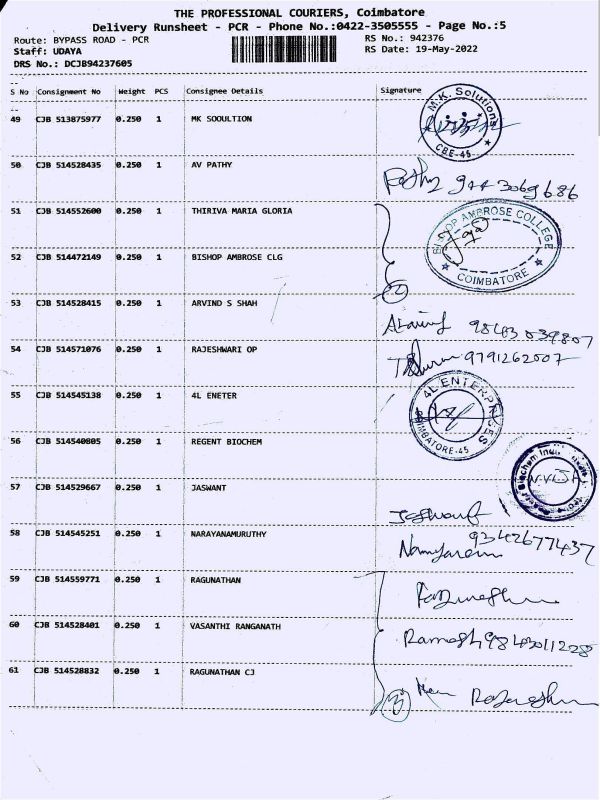 THE PROFESSIONAL COURIERS, Coimbatore
Delivery Runsheet - PCR - Phone No.:0422-3505555 - Page No.:5
Route: BYPASS ROAD - PCR RS No.: 942376
Staff: UDAYA RS Date: 19-May-2022
DRS No.: DCJB94237605
S No Consignment No Weight PCS Consignee Details Signature
49 CJB 513875977 0.250 1 MK SOOULTION
M.K. Solutions
CBE-45
50 CJB 514528435 0.250 1 AV PATHY
Pathy 944 3069686
51 CJB 514552600 0.250 1 THIRIVA MARIA GLORIA
BISHOP AMBROSE COLLEGE
COIMBATORE
52 CJB 514472149 0.250 1 BISHOP AMBROSE CLG
53 CJB 514528415 0.250 1 ARVIND S SHAH
54 CJB 514571076 0.250 1 RAJESHWARI OP
9791262007
55 CJB 514545138 0.250 1 4L ENETER
4L ENTERPRISES
COIMBATORE-45
56 CJB 514540805 0.250 1 REGENT BIOCHEM
57 CJB 514529667 0.250 1 JASWANT
Jaswant
58 CJB 514545251 0.250 1 NARAYANAMURUTHY
9342677437
59 CJB 514559771 0.250 1 RAGUNATHAN
60 CJB 514528401 0.250 1 VASANTHI RANGANATH
Ramesh 9843011228
61 CJB 514528832 0.250 1 RAGUNATHAN CJ